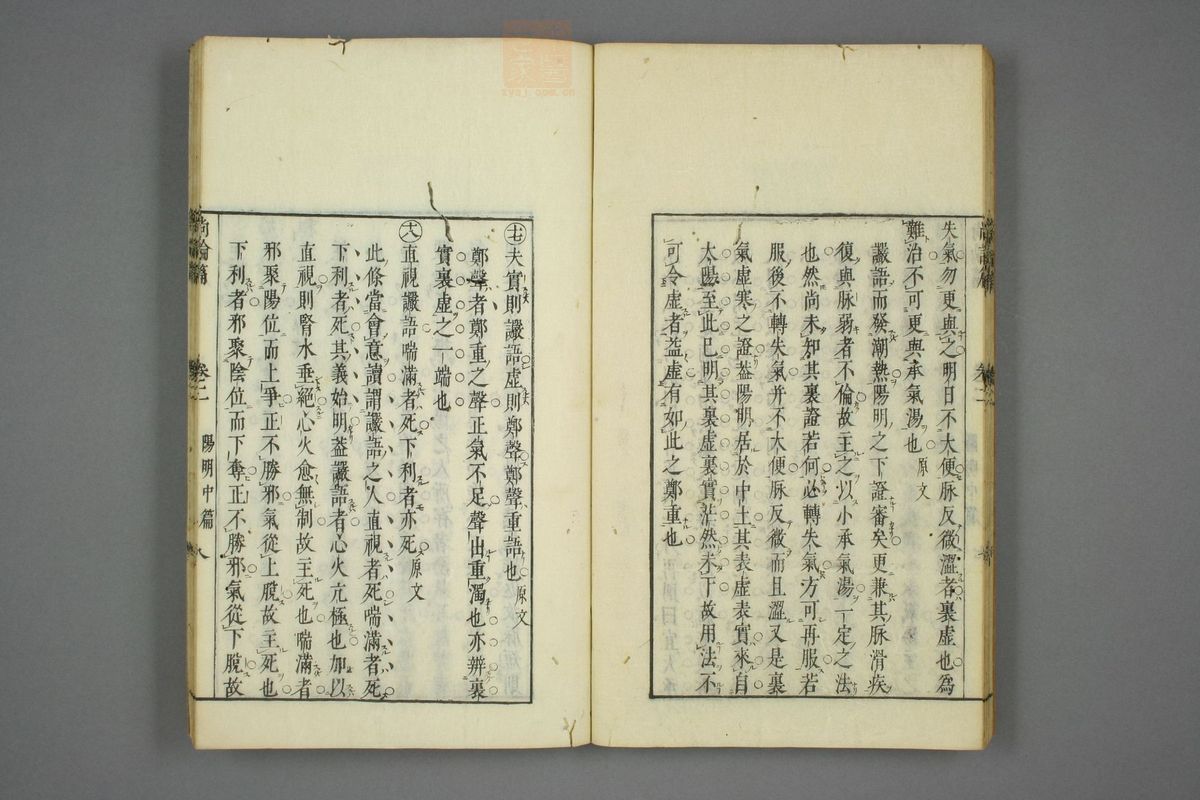 失氣勿更與之明日不大便脉反微澀者裏虛也爲
難治不可更與承氣湯也原文
讝語而發潮熱陽明之下證審矣更兼其脉滑疾
復與脉弱者不倫故主之以小承氣湯一定之法
也然尚未知其裏證若何必轉失氣方可再服若
服後不轉失氣并不大便脉反微而且澀又是裏
氣虛寒之證葢陽明居於中土其表虛表實來自
太陽至此已明其裏虛裏實茫然未下故用法不
可令虛者益虛有如此之鄭重也
尚論篇 卷二
㊆夫實則讝語虛則鄭聲鄭聲重語也原文
鄭聲者鄭重之聲正氣不足聲出重濁也亦辨裏
實裏虛之一端也
直視讝語喘滿者死下利者亦死原文
此條當會意讀謂讝語之人直視者死喘滿者死
下利者死其義始明葢讝語者心火亢極也加以
直視則腎水垂絕心火愈無制故主死也喘滿者
邪聚陽位而上爭正不勝邪氣從上脫故主死也
下利者邪聚陰位而下奪正不勝邪氣從下脫故
尚論篇 卷二 陽明中篇 八